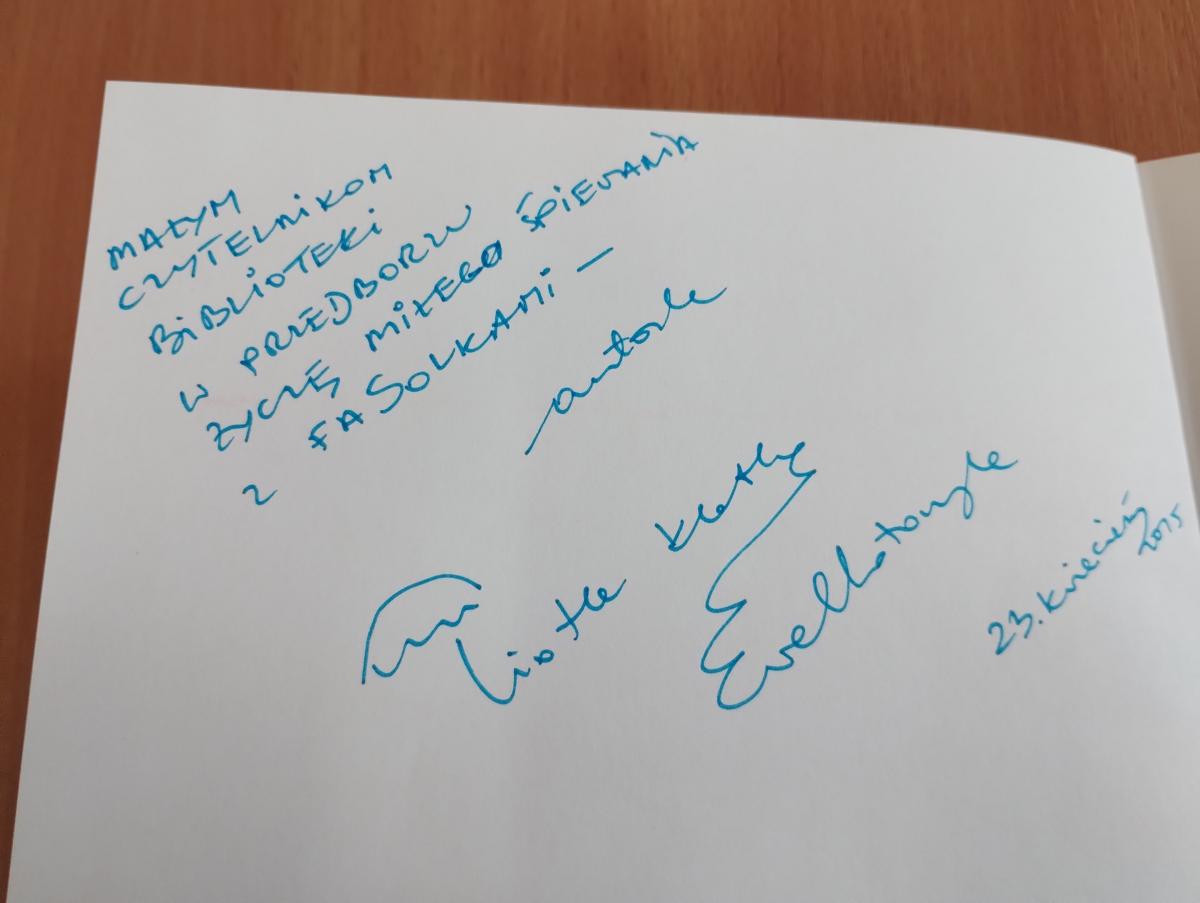 MAŁYM
CZYTELNIKOM
BIBLIOTEKI
W PRZEDBORZU
ŻYCZĘ MIŁEGO ŚPIEWANIA
Z FASOLKAMI —
autorka
Ciotka Klotka
Ewa
23. kwiecień
2015